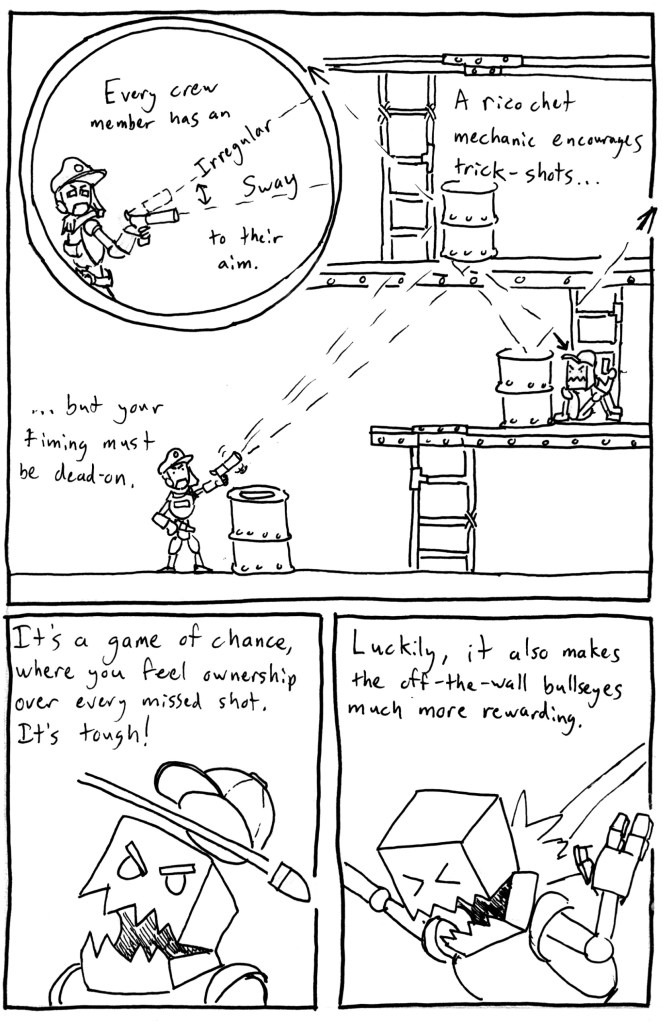 Every crew
member has an
Irregular
Sway
to their
aim.
A ricochet
mechanic encourages
trick-shots...
... but your
timing must
be dead-on.
It's a game of chance,
where you feel ownership
over every missed shot.
It's tough!
Luckily, it also makes
the off-the-wall bullseyes
much more rewarding.